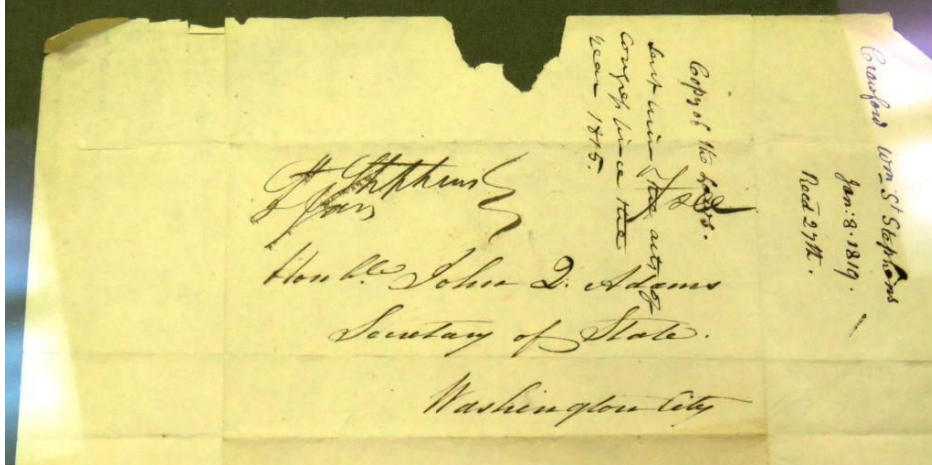 St Stephens
8 Jany
Free
Honble. John Q. Adams
Secretary of State.
Washington City
Copy of the Laws.
sent him & the acts of
Congress since the
year 1815.
Crawford Wm St Stephens
Jan: 8. 1819.
Recd 27th.